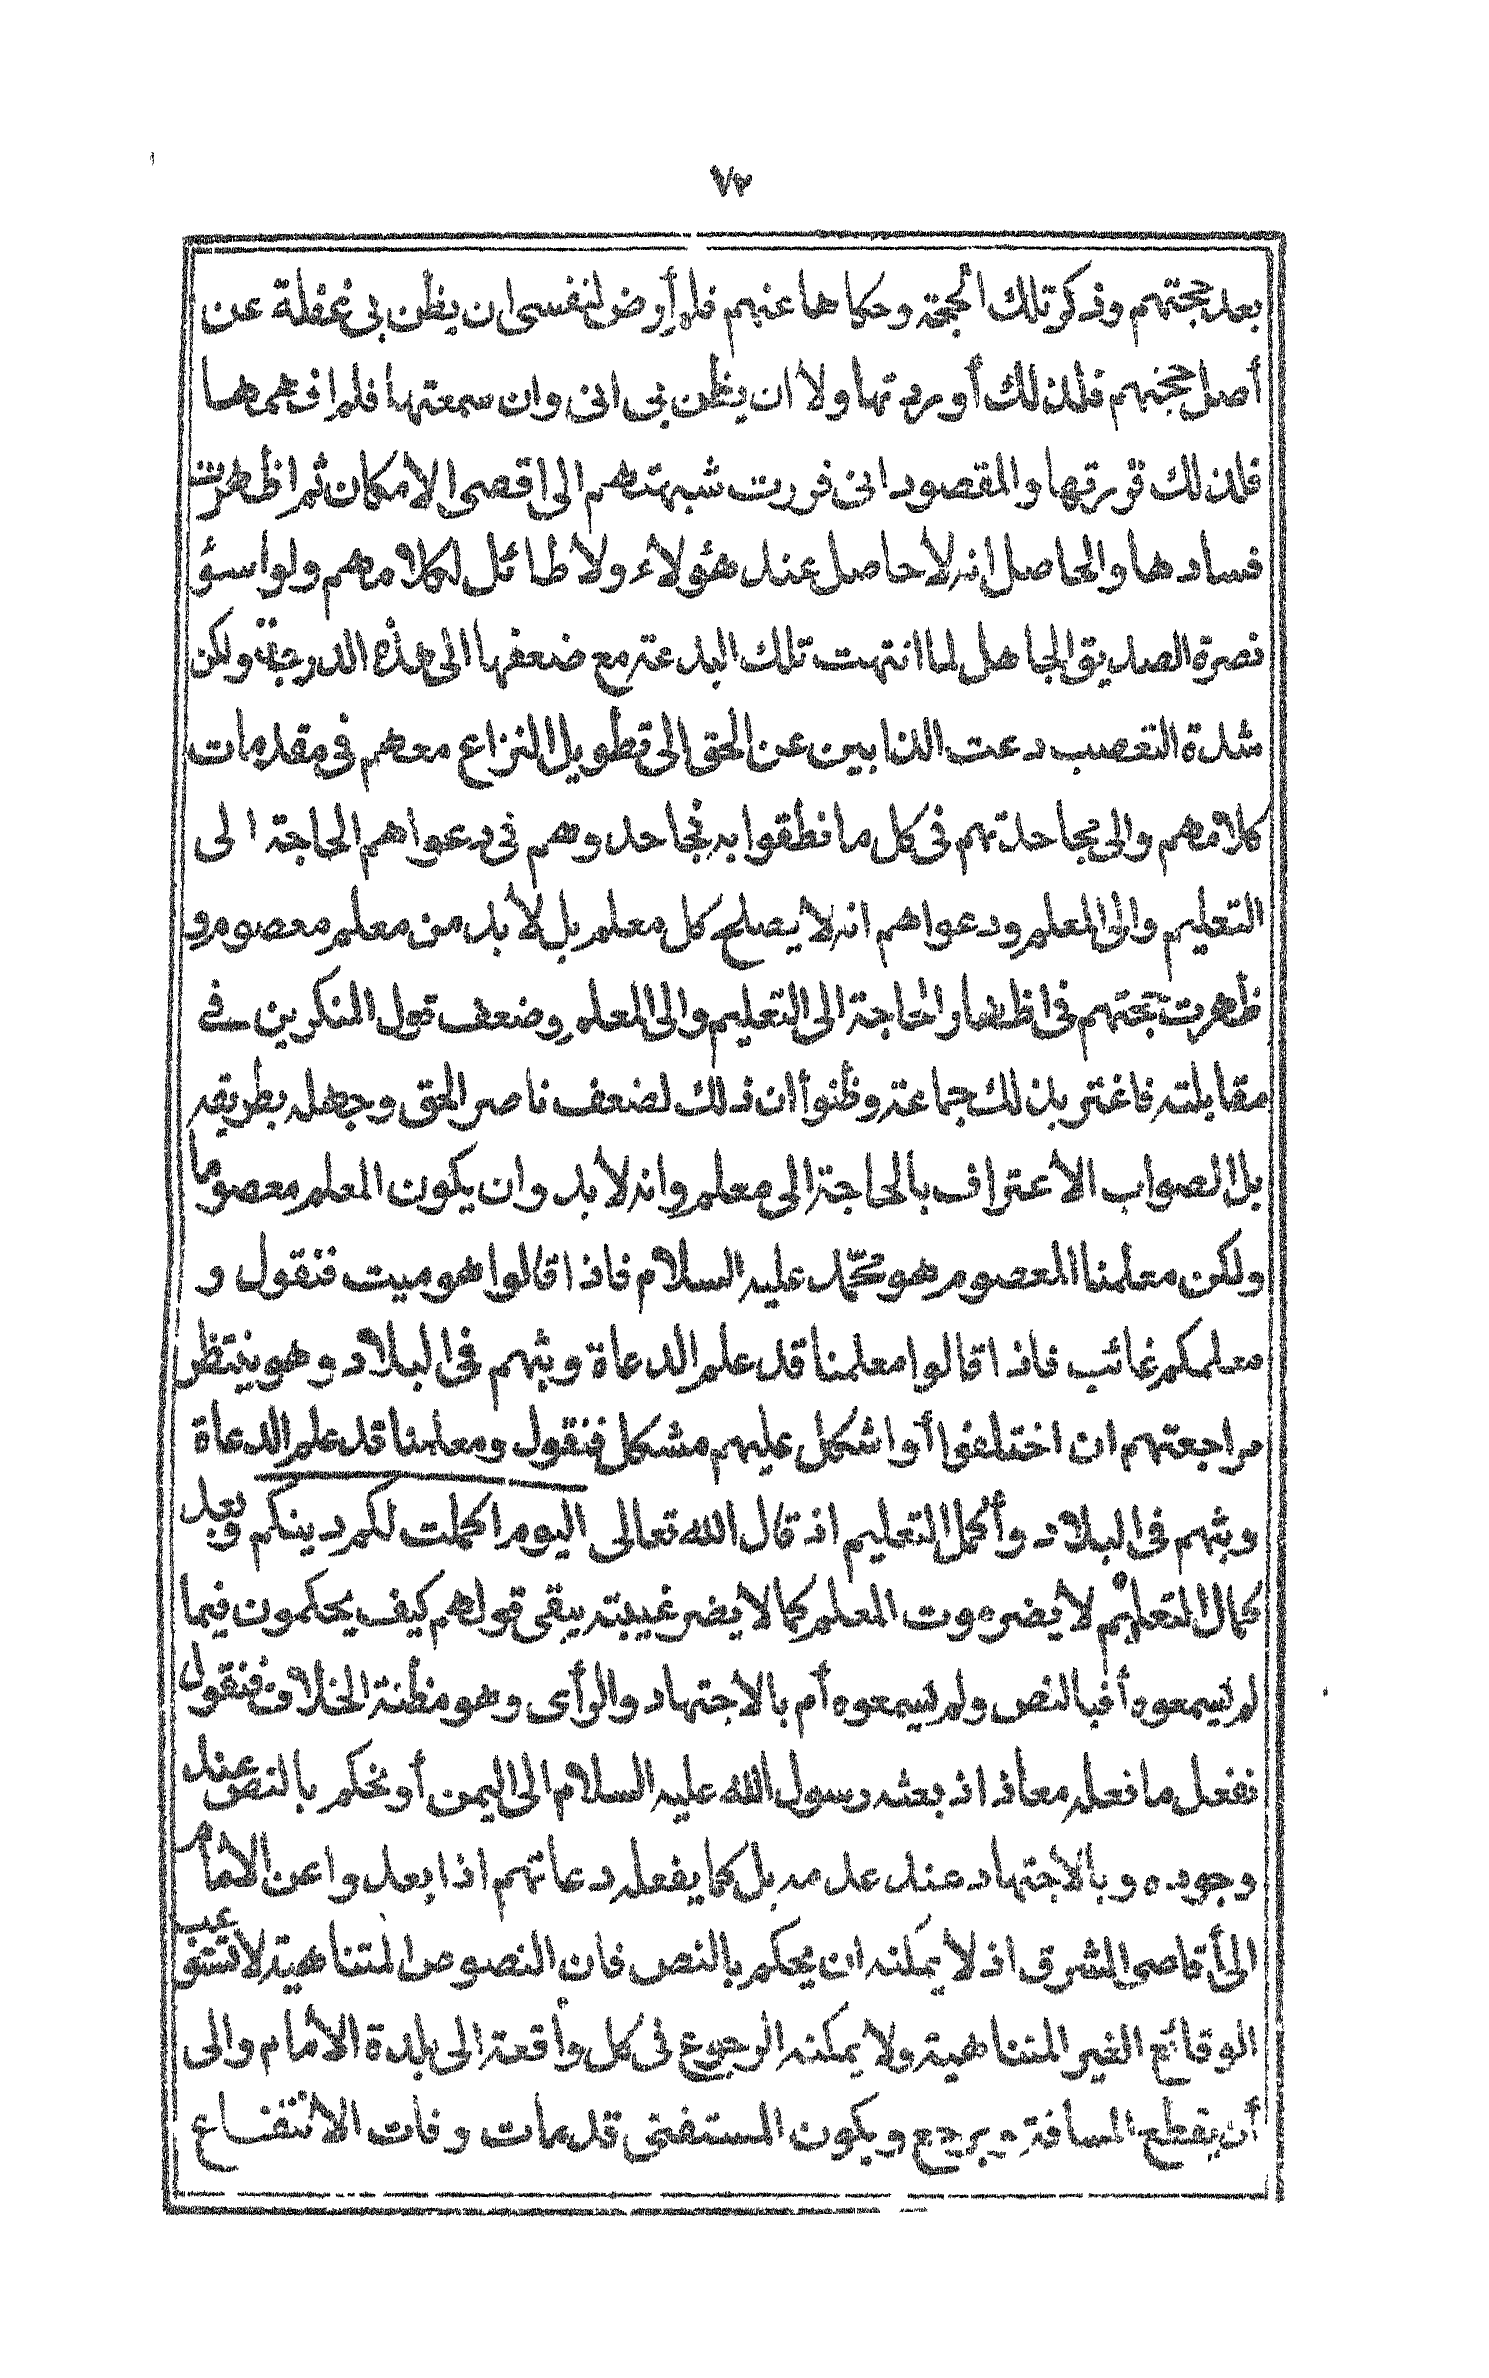 ٧٣
بعد حجتهم وذكر تلك الحجة وحكاها عنهم فلم أرض لنفسى ان يظن بى غفلة عن
أصل حجتهم فلذلك أوردتها ولا ان يظن بى انى وان سمعتها فلم افهمها
فلذلك قررتها والمقصود انى قررت شبهتهم الى اقصى الامكان ثم اظهرت
فسادها والحاصل انه لا حاصل عند هؤلاء ولا طائل لكلامهم ولو لا سوء
نصرة الصديق الجاهل لما انتهت تلك البدعة مع ضعفها الى هذه الدرجة ولكن
شدة التعصب دعت الذابين عن الحق الى تطويل النزاع معهم فى مقدمات
كلامهم والى مجاحدتهم فى كل ما نطقوا به فجاحدوهم فى دعواهم الحاجة الى
التعليم والى المعلم ودعواهم انه لا يصلح كل معلم بل لا بد من معلم معصوم و
ظهرت حجتهم فى اظهار الحاجة الى التعليم والى المعلم وضعف قول المنكرين فى
مقابلته فاغتر بذلك جماعة وظنوا ان ذلك لضعف ناصر الحق وجهله بطريقه
بل الصواب الاعتراف بالحاجة الى معلم وانه لا بد وان يكون المعلم معصوما
ولكن معلمنا المعصوم هو محمد عليه السلام فاذا قالوا هو ميت فنقول و
معلمكم غائب فاذا قالوا معلمنا قد علم الدعاة وبثهم فى البلاد وهو ينتظر
مراجعتهم ان اختلفوا أو اشكل عليهم مشكل فنقول ومعلمنا قد علم الدعاة
وبثهم فى البلاد وأكمل التعليم اذ قال الله تعالى اليوم اكملت لكم دينكم وبعد
كمال التعليم لا يضره موت المعلم كما لا يضر غيبته يبقى قولهم كيف يحكمون فيما
لم تسمعوه أفبالنص ولم تسمعوه أم بالاجتهاد والرأى وهو مظنة الخلاف فنقول
نفعل ما فعله معاذ اذ بعثه رسول الله عليه السلام الى اليمن أو نحكم بالنص عند
وجوده وبالاجتهاد عند عدمه بل كما يفعله دعاتهم اذا بعدوا عن الامام
الى أقاصى المشرق اذ لا يمكنه ان يحكم بالنص فان النصوص المتناهية لا تستوعب
الوقائع الغير المتناهية ولا يمكنه الرجوع فى كل واقعة الى بلدة الامام والى
أن يقطع المسافة ويرجع ويكون المستفتى قد مات وفات الانتفاع